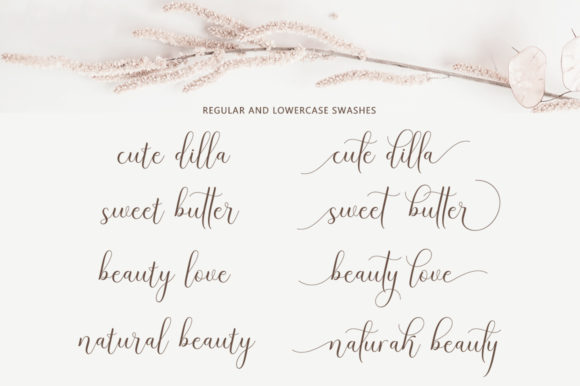 REGULAR AND LOWERCASE SWASHES
cute dilla cute dilla
sweet butter sweet butter
beauty love beauty love
natural beauty natural beauty